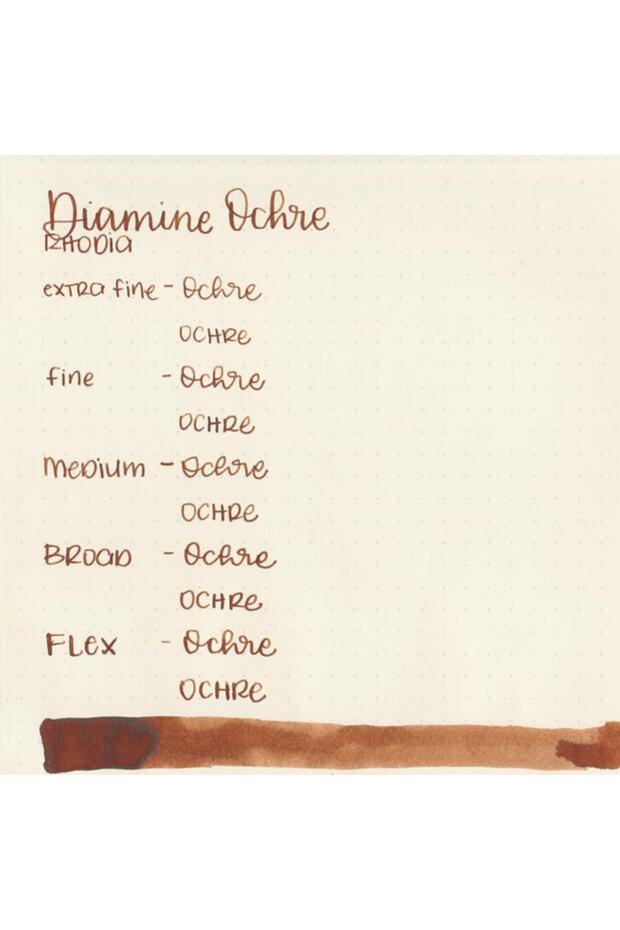 Diamine Ochre
RHODIA
extra fine - Ochre
OCHRe
fine - Ochre
OCHRe
Medium - Ochre
OCHRe
BROAD - Ochre
OCHRe
FLex - Ochre
OCHRe